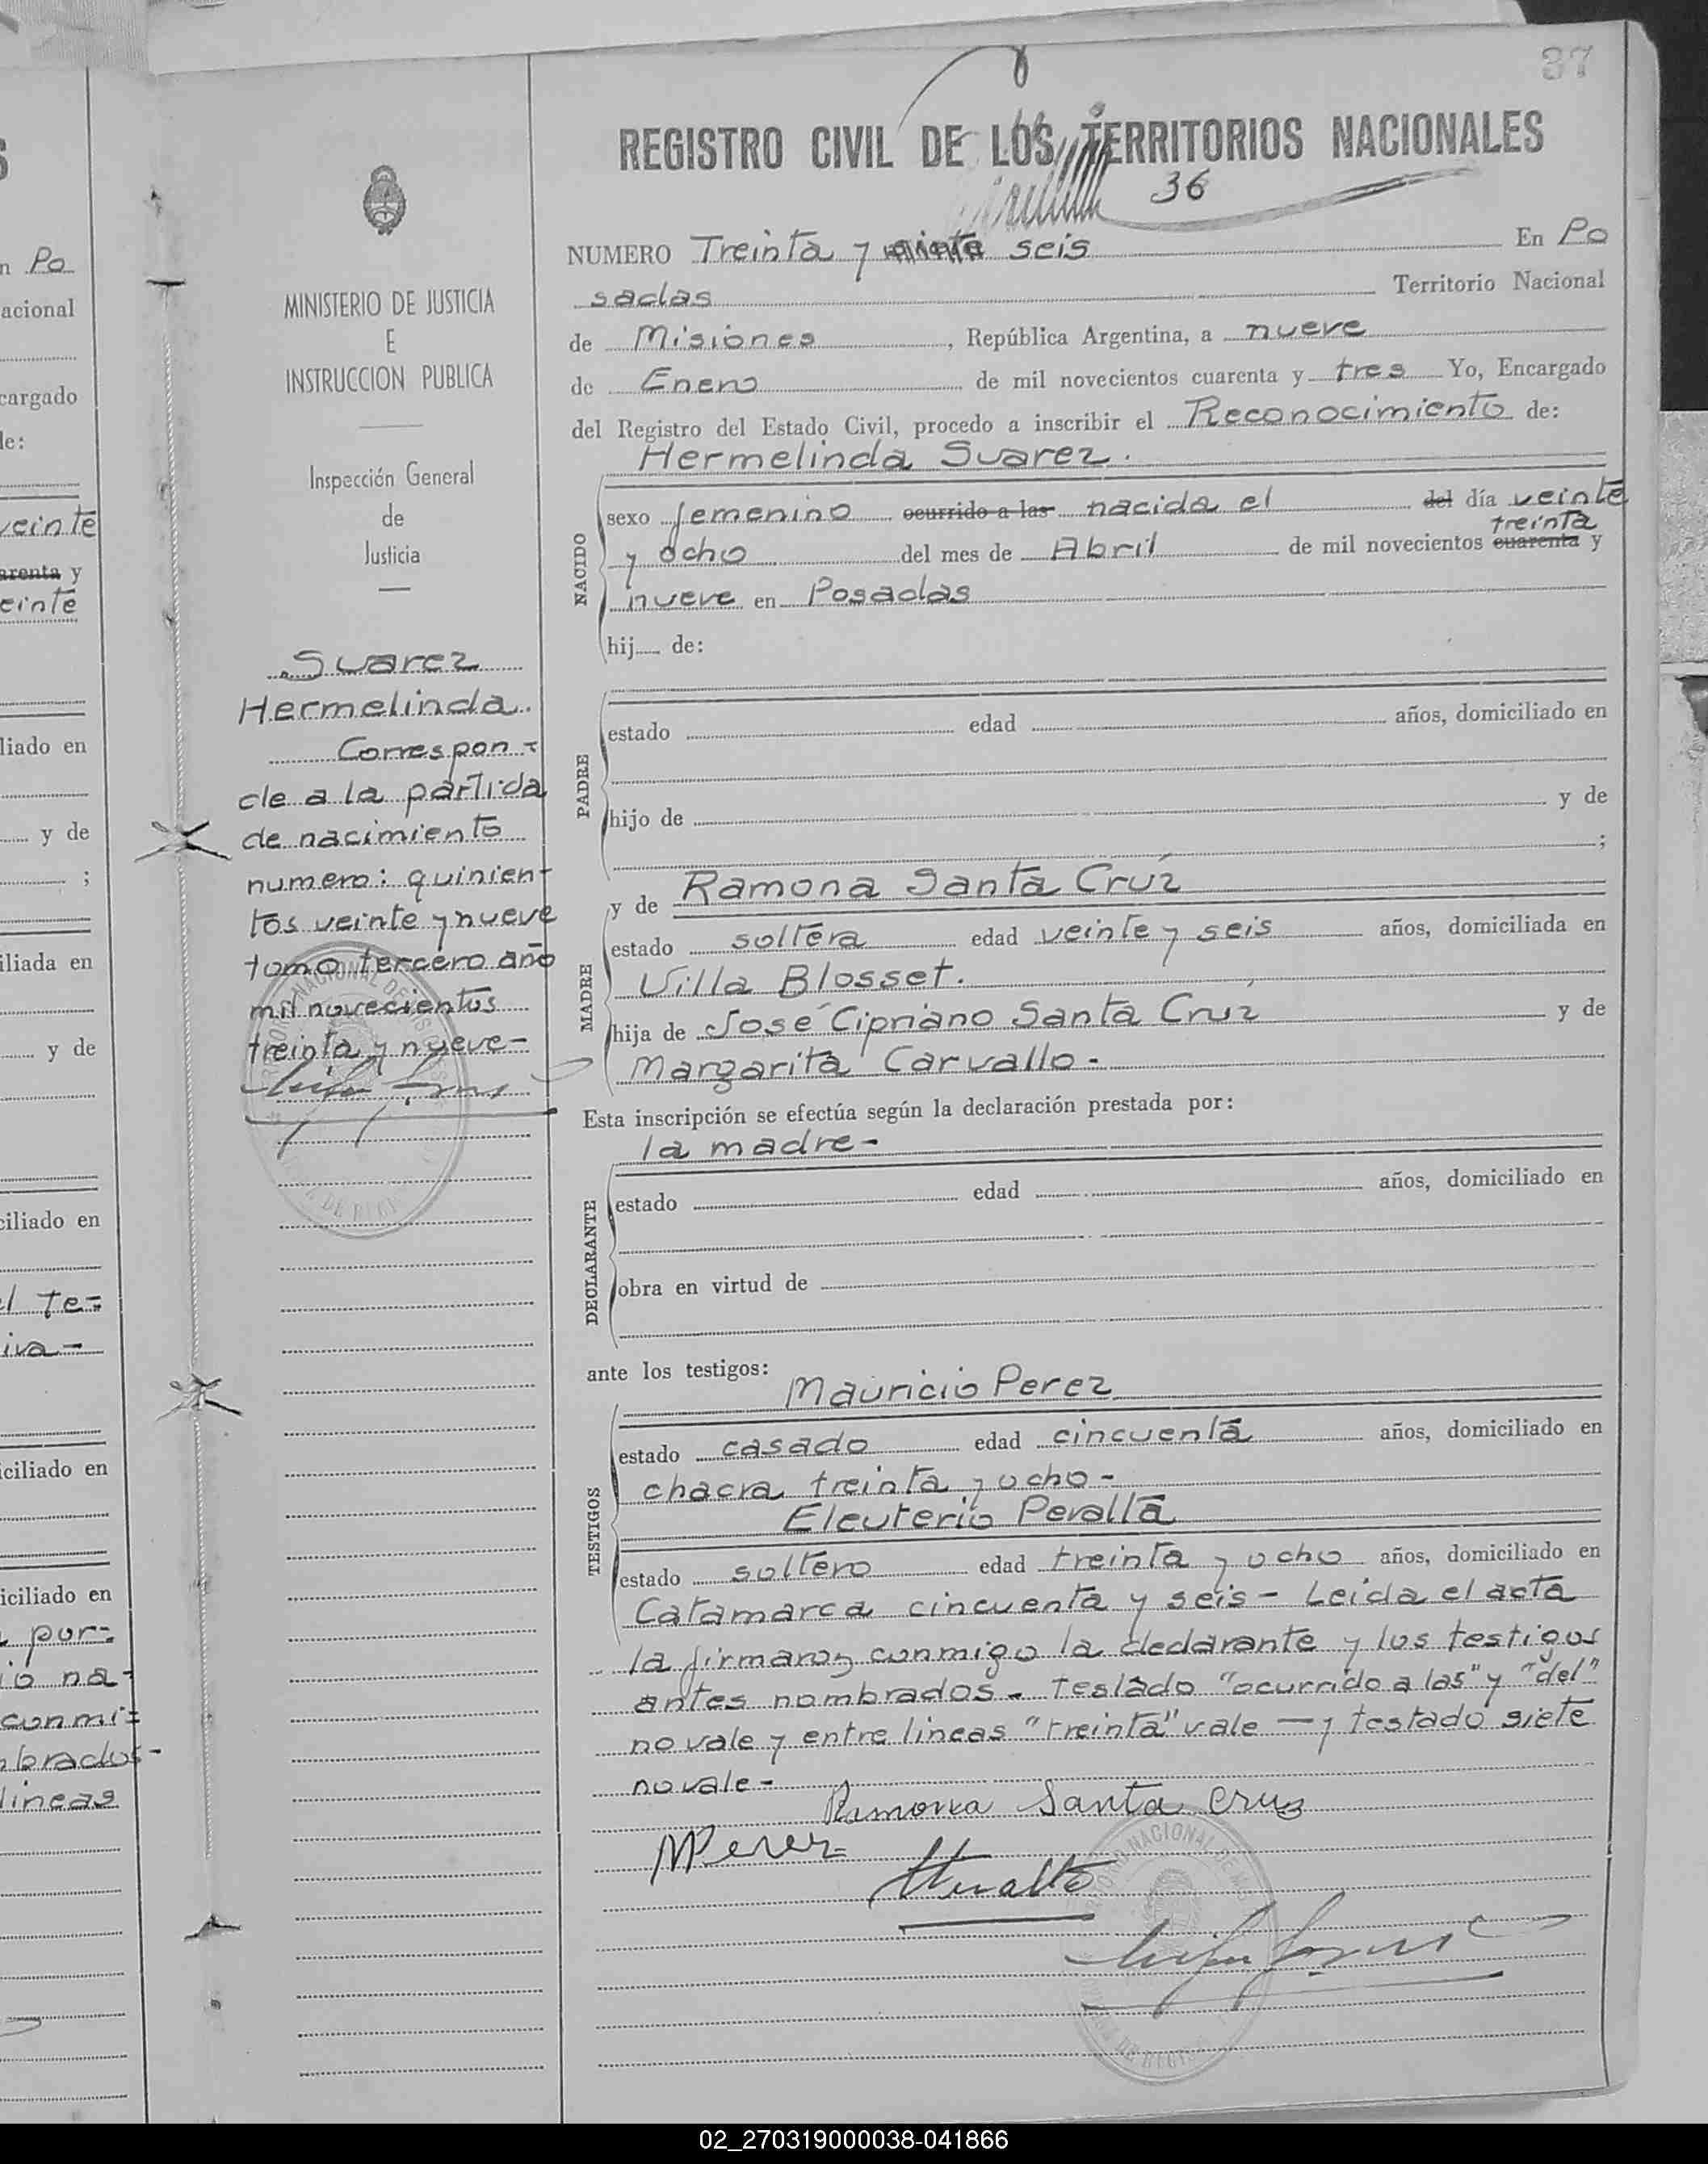 37
REGISTRO CIVIL DE LOS TERRITORIOS NACIONALES
36
NUMERO Treinta y siete seis En Po
sadas Territorio Nacional
de Misiones, República Argentina, a nueve
de Enero de mil novecientos cuarenta y tres Yo, Encargado
del Registro del Estado Civil, procedo a inscribir el Reconocimiento de:
Hermelinda Suarez.
NACIDO
sexo femenino ocurrido a las nacida el del día veinte
treinta
y ocho del mes de Abril de mil novecientos cuarenta y
nueve en Posadas
hij de:
PADRE
estado edad años, domiciliado en
hijo de y de
;
y de Ramona Santa Cruz
MADRE
estado soltera edad veinte y seis años, domiciliada en
Villa Blosset.
hija de José Cipriano Santa Cruz y de
Margarita Carvallo-
Esta inscripción se efectúa según la declaración prestada por:
la madre-
DECLARANTE
estado edad años, domiciliado en
obra en virtud de
ante los testigos:
Mauricio Perez
TESTIGOS
estado casado edad cincuenta años, domiciliado en
chacra treinta y ocho-
Eleuterio Peralta
estado soltero edad treinta y ocho años, domiciliado en
Catamarca cincuenta y seis- Leida el acta
la firmaron conmigo la declarante y los testigos
antes nombrados- testado "ocurrido a las" y "del"
no vale y entre lineas "treinta" vale — y testado siete
no vale-
Ramona Santa Cruz
MPerez
MINISTERIO DE JUSTICIA
E
INSTRUCCION PUBLICA
Inspección General
de
Justicia
Suarez
Hermelinda.
Correspon-
de a la partida
de nacimiento
numero: quinien-
tos veinte y nueve
tomo tercero año
mil novecientos
treinta y nueve-
S
n Po
acional
cargado
de:
veinte
arenta y
einte
liado en
y de
;
iliada en
y de
ciliado en
el te-
iva-
iciliado en
iciliado en
por-
io na-
conmi-
mbrados-
lineas
02_270319000038-041866